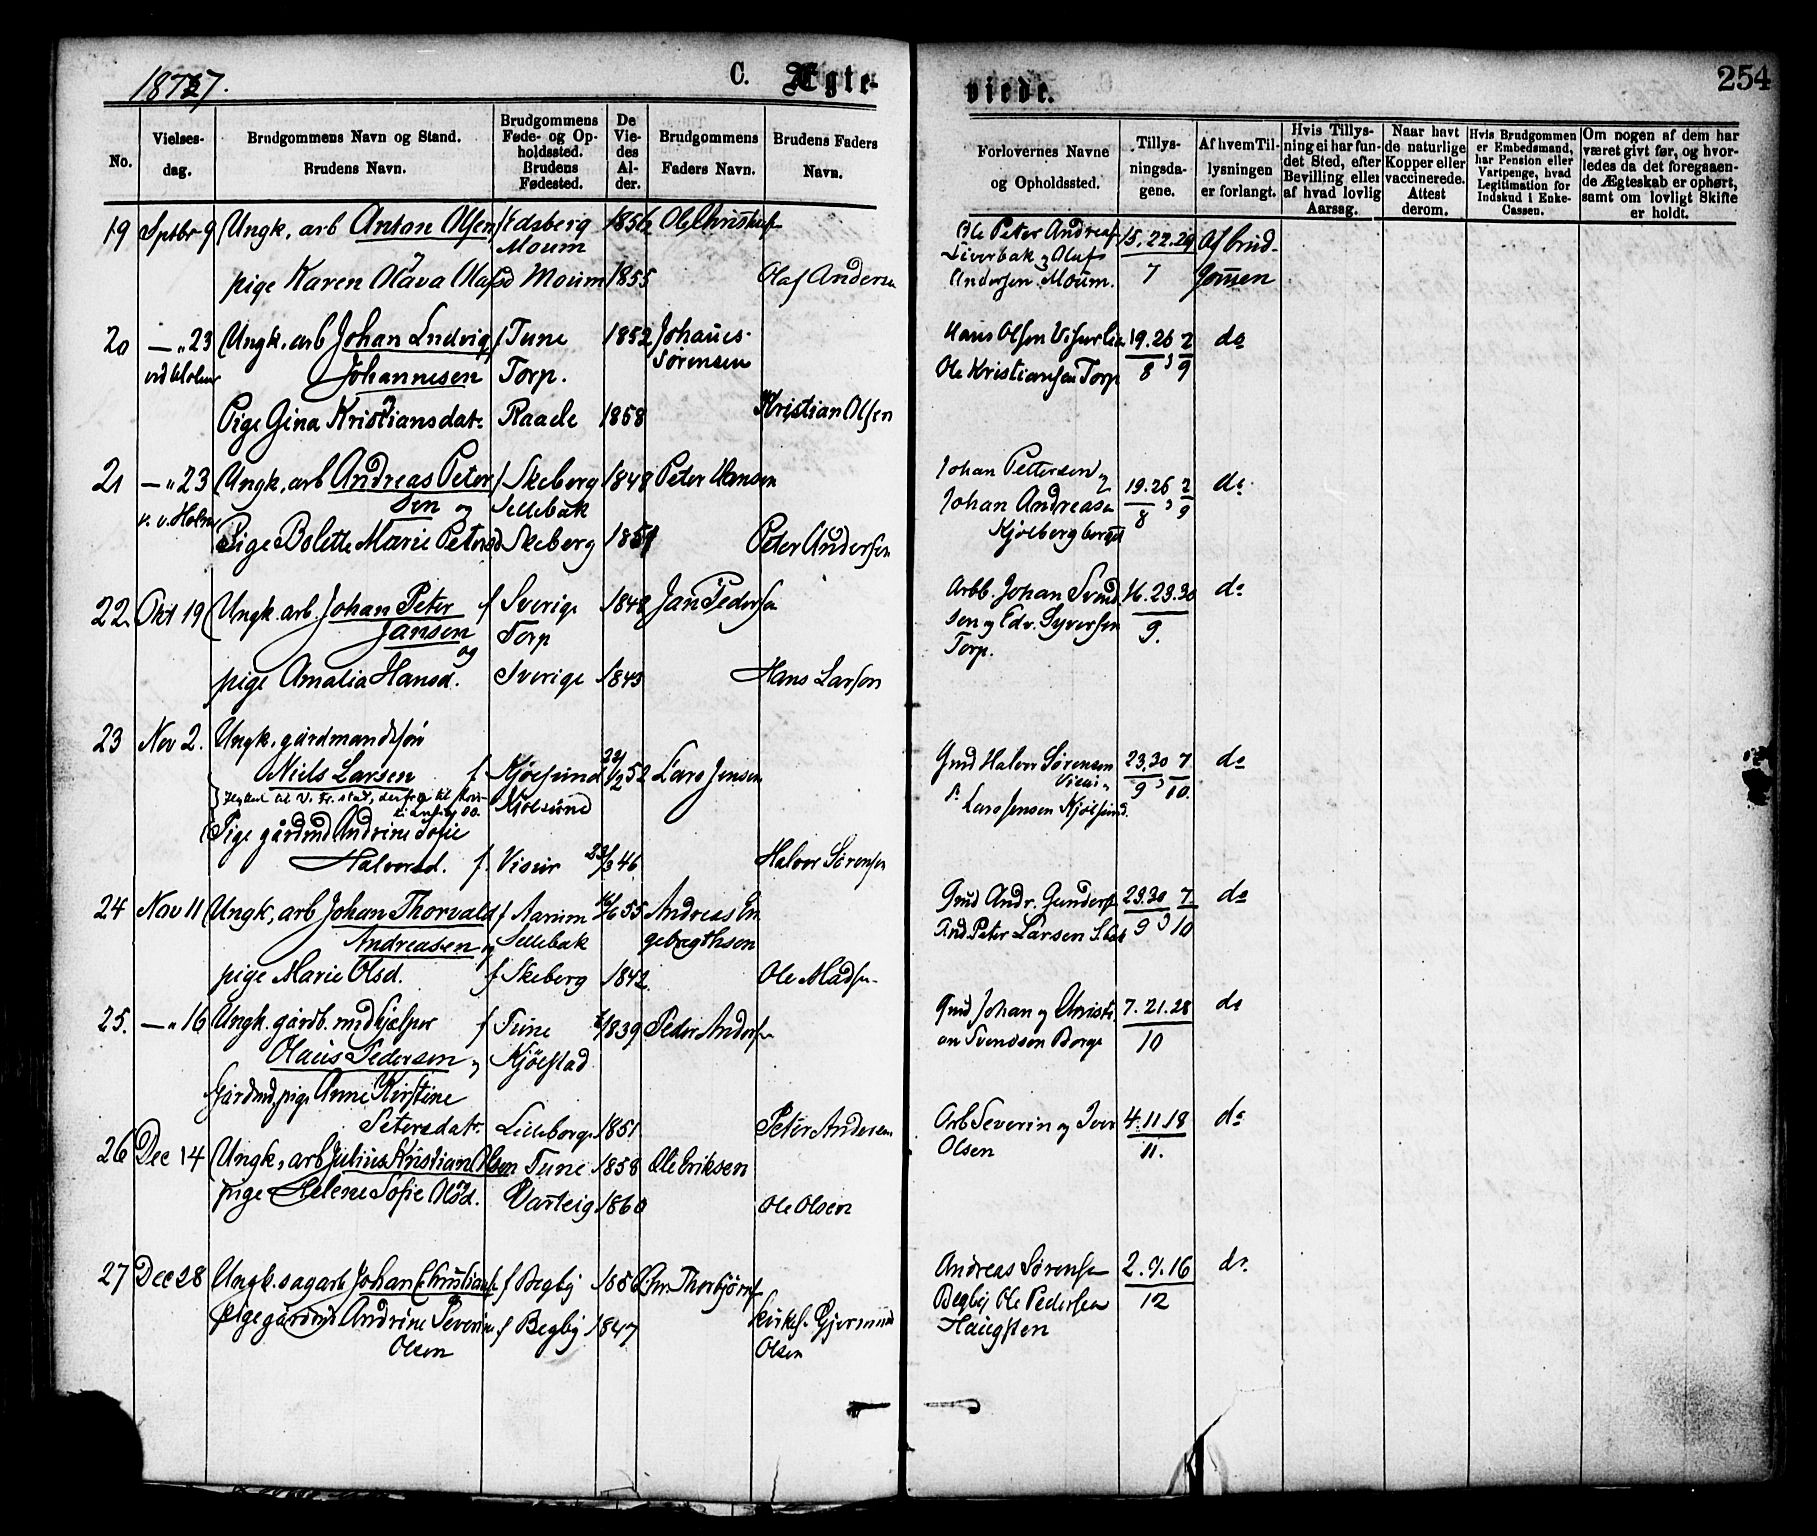 1877.
C. Ægte-
viede.
254
No.
Vielses-
dag.
Brudgommens Navn og Stand.
Brudens Navn.
Brudgommens
Føde- og Op-
holdssted.
Brudens
Fødested.
De
Vie-
des
Al-
der.
Brudgommens
Faders Navn.
Brudens Faders
Navn.
Forlovernes Navne
og Opholdssted.
Tillys-
ningsda-
gene.
Af hvem Til-
lysningen
er forlangt.
Hvis Tillys-
ning ei har fun-
det Sted, efter
Bevilling eller
af hvad lovlig
Aarsag.
Naar havt
de naturlige
Kopper eller
vaccinerede.
Attest
derom.
Hvis Brudgommen
er Embedsmand,
har Pension eller
Vartpenge, hvad
Legitimation for
Indskud i Enke-
Cassen.
Om nogen af dem har
været givt før, og hvor-
ledes da det foregaaen-
de Ægteskab er ophørt,
samt om lovligt Skifte
er holdt.
19 Sptbr 9 Ungk. arb Anton Olsen f Edsberg 1856 Ole Christof
Moum
pige Karen Olava Olafsd Moum 1855 Olaf Andersen
Ole Peter Andreas 15. 22. 29 Af brud-
Liverbak og Olaf
Andersen Moum. 7 gommen
20 — " 23 Ungk. arb Johan Ludvig f Tune 1852 Johañes
Johannesen Torp. Sørensen
Pige Gina Kristiansdat. Raade 1858 Kristian Olsen
Hans Olsen 19. 26 2 do
Ole Kristiansen Torp 8 , 9
21 — " 23 Ungk. arb Andreas Peter f Skeberg 1848 Peter Hansen
sen og Sellebak
Pige Bolette Marie Petersd Skeberg Peter Andersen
Johan Pettersen og
Johan Andreasen 19. 26 2 do
Kjølberg 8 , 9
22. Okt 19 Ungk. arb. Johan Peter f Sverige 1848 Jan Pedersen
Jansen Torp
og
pige Amalia Hansd. Sverige 1843 Hans Larsen
Arbb. Johan Svend 16. 23. 30 do
sen og Edv. Syversen 9.
Torp.
23 Nov 2. Ungk. gårdmandssøn
Niels Larsen f. Kjølsund 52 Lars Jensen
Kjølsund
Pige gårdmd Andrine Sofie
Halvorsd. f. Visur 23/3 46 Halvor Sørensen
Gmd Halvor Sørensen 23. 30 7 do
Lars Jensen Kjølsund. 9 , 10.
24 Nov 11 Ungk. arb Johan Thorvald f Aarum 55 Andreas En
Andreasen og Sellebak gebregthsen
pige Marie Olsd. f Skeberg 1842. Ole Madsen
Gmd Andr. Gunders 23. 30 7 do
Peter Larsen 9 , 10
25. — " 16 Ungk. gårdb. medhjælper f Tune 1839 Peder Anders
Olaus Pedersen og Kjølstad
Gårdmd. pige Anne Kirstine
Petersdat. Lilleborge 1851 Peter Andersen
Gmd Johan og Christi 7. 21. 28 do
an Svendsen Borge 10
26 Dec 14 Ungk. arb Julius Kristian Olsen Tune 1858 Ole Eriksen
pige Helene Sofie Olsd. Varteig 1860 Ole Olsen
Arb Severin og Iver 4. 11 18 do
Olsen 11.
27 Dec 28 Ungk. sagarb Johan Christians f Begby Chr. Thorbjørns
pige gårdmd Andrine Severine f Begby 1847 Gjermund
Olsen Olsen
Andreas Sørensen 2. 9. 16 do
Begby Ole Pedersen 12
Haugsten